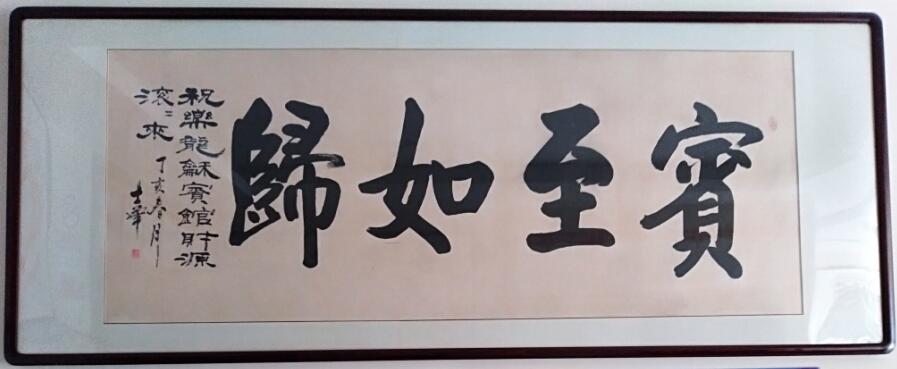 賓至如歸
祝樂龍穌賓館財源
滾〻來
丁亥春月